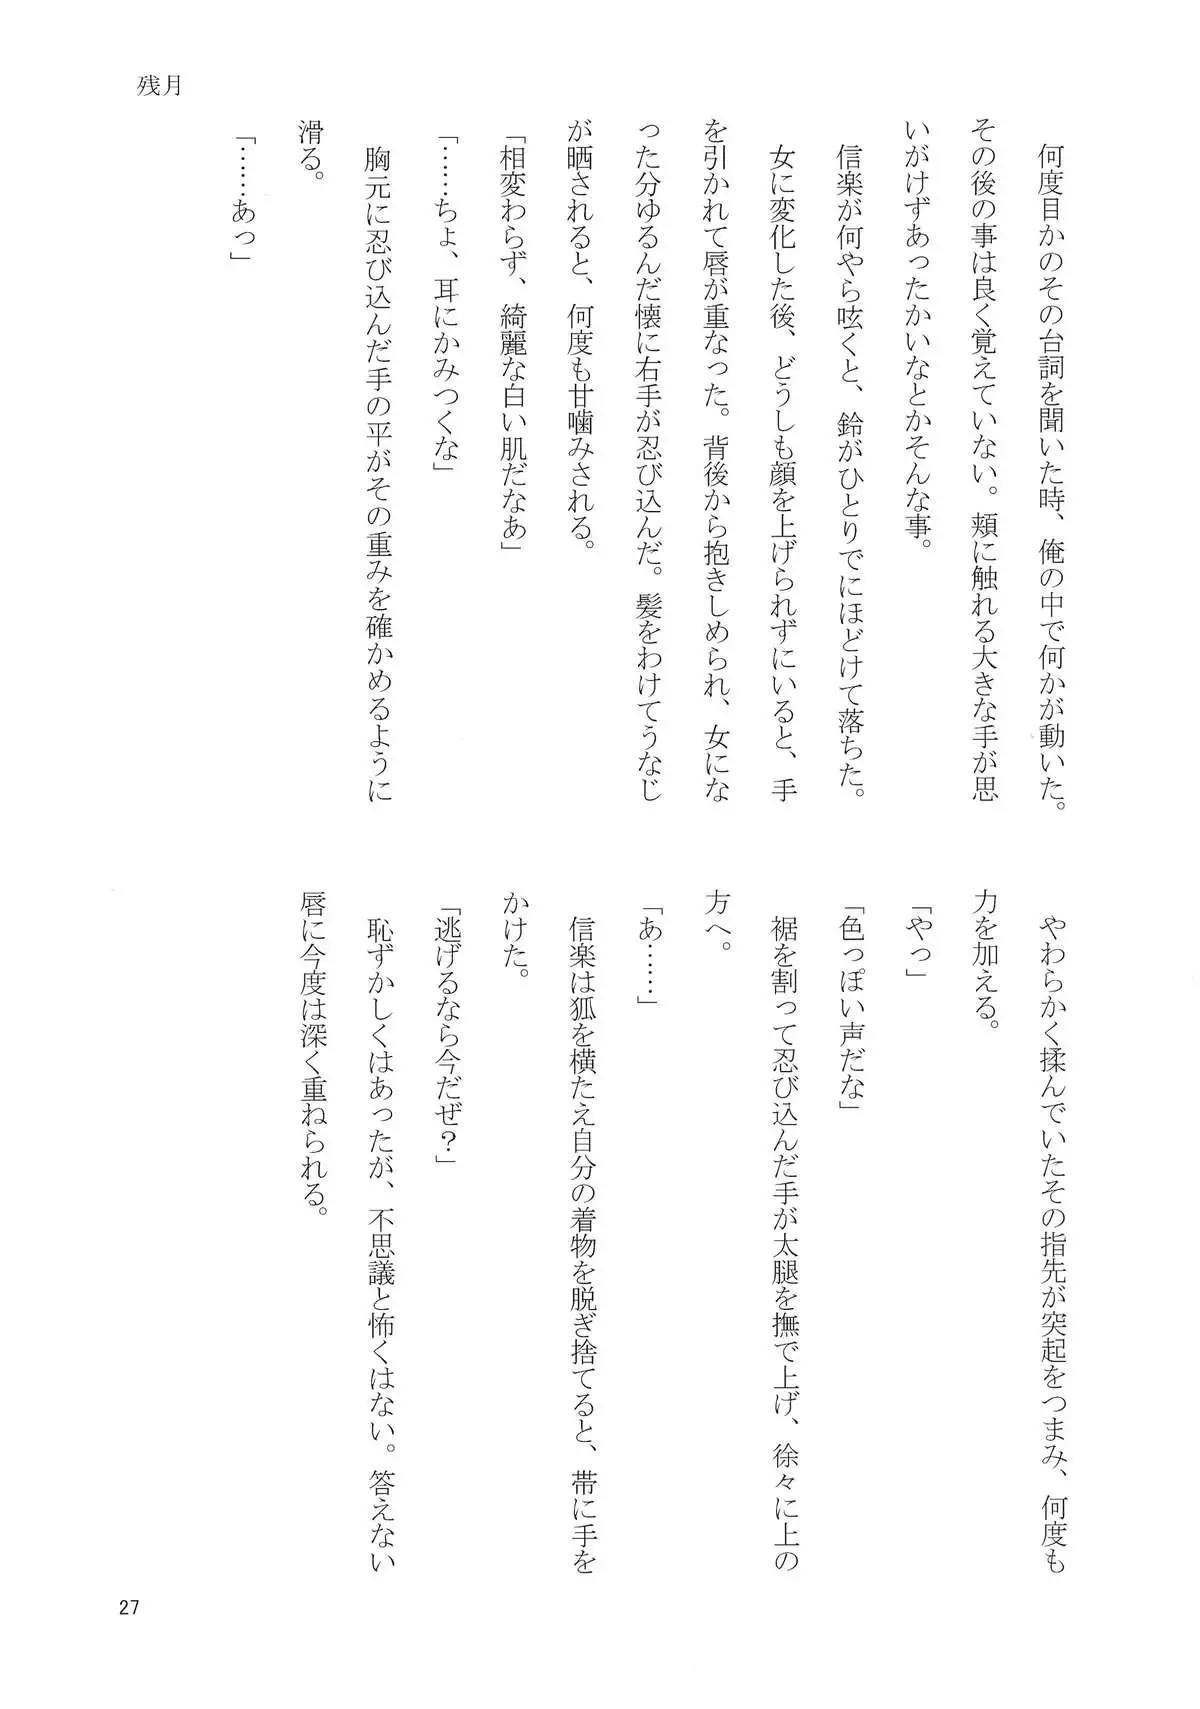 残月
何度目かのその台詞を聞いた時、俺の中で何かが動いた。
その後の事は良く覚えていない。頬に触れる大きな手が思
いがけずあったかいなとかそんな事。
信楽が何やら呟くと、鈴がひとりでにほどけて落ちた。
女に変化した後、どうしも顔を上げられずにいると、手
を引かれて唇が重なった。背後から抱きしめられ、女にな
った分ゆるんだ懐に右手が忍び込んだ。髪をわけてうなじ
が晒されると、何度も甘噛みされる。
「相変わらず、綺麗な白い肌だなあ」
「……ちょ、耳にかみつくな」
胸元に忍び込んだ手の平がその重みを確かめるように
滑る。
「……あっ」
やわらかく揉んでいたその指先が突起をつまみ、何度も
力を加える。
「やっ」
「色っぽい声だな」
裾を割って忍び込んだ手が太腿を撫で上げ、徐々に上の
方へ。
「あ……」
信楽は狐を横たえ自分の着物を脱ぎ捨てると、帯に手を
かけた。
「逃げるなら今だぜ?」
恥ずかしくはあったが、不思議と怖くはない。答えない
唇に今度は深く重ねられる。
27